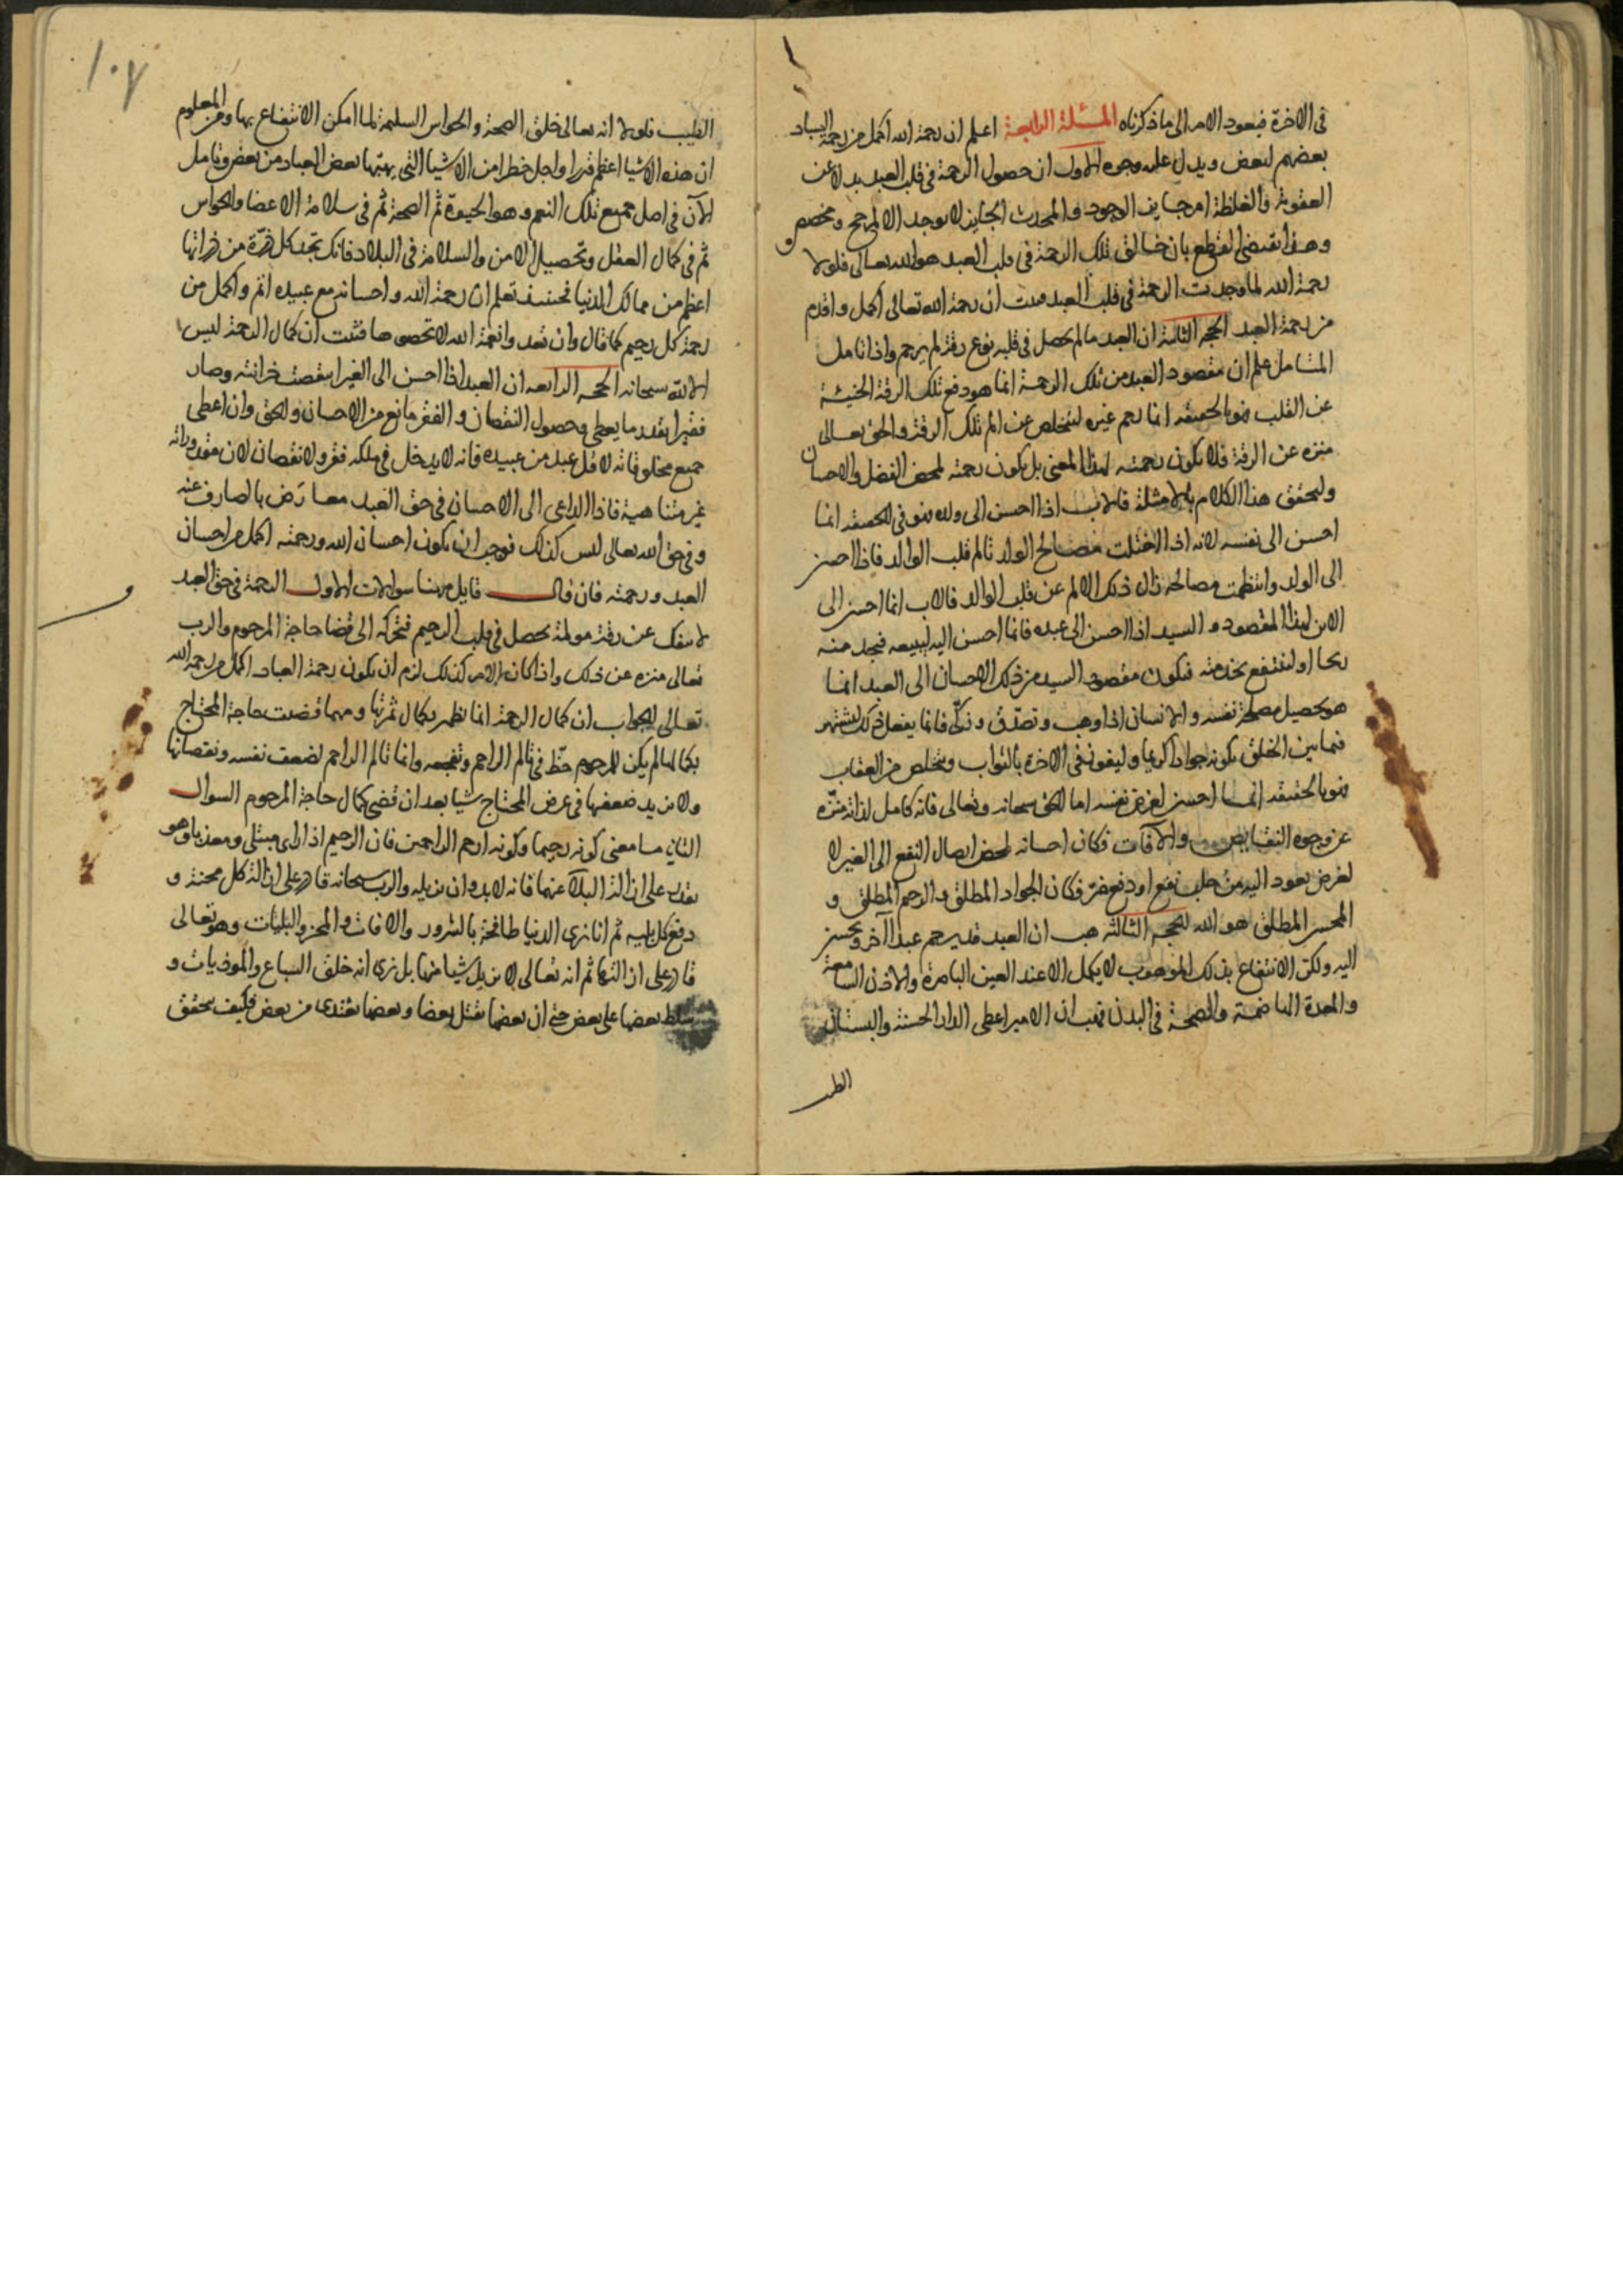 فى الاخرة فيعود الامر الى ما ذكرناه المسئلة الرابعة اعلم ان رحمة الله اكمل من رحمة العباد
بعضهم لبعض ويدل عليه وجوه الاول ان حصول الرحمة فى قلب العبد بدلا عن
العقوبة والغلظة امر جايز الوجود والمحدث الجايز لا يوجد الا لمرجح ومخصص و
وهذا يقتضى القطع بان خالق تلك الرحمة فى قلب العبد هو الله تعالى فلولا
رحمة الله لما وجدت الرحمة فى قلب العبد فثبت ان رحمة الله تعالى اكمل واقدم
من رحمة العبد الحجه الثانية ان العبد ما لم يحصل فى قلبه نوع رقة لم يرحم واذا تامل
المتامل علم ان مقصود العبد من تلك الرحمة انما هو دفع تلك الرقة الجنسية
عن القلب فهو بالحقيقه انما رحم غيره ليتخلص عن الم تلك الرقة والحق تعالى
منزه عن الرقة فلا يكون رحمته لهذا المعنى بل يكون رحمته لمحض الفضل والاحسان
وليحقق هذا الكلام بالامثلة فالاب اذا احسن الى ولده فهو فى الحقيقه انما
احسن الى نفسه لانه اذا اختلت مصالح الولد تالم قلب الوالد فاذا احسن
الى الولد وانتظمت مصالحه زال ذلك الالم عن قلب الوالد فالاب انما احسن الى
الابن لهذا المقصود والسيد اذا احسن الى عبده فانما احسن اليه ليبيعه فيجد منه
ربحا او لينتفع بخدمته فيكون مقصود السيد من ذلك الاحسان الى العبد انما
هو تحصيل مصلحة نفسه والانسان اذا وهب وتصدق وزكى فانما يفعل ذلك ليشتهر
فيما بين الخلق بكونه جوادا كريما وليفوز فى الاخرة بالثواب ويتخلص من العقاب
فهو بالحقيقه انما احسن لغرض نفسه اما الحق سبحانه وتعالى فانه كامل لذاته منزه
عن وجوه النقايص والآفات فكان احسانه لمحض ايصال النفع الى الغير لا
لغرض يعود اليه من جلب نفع او دفع ضر فكان الجواد المطلق والرحيم المطلق و
المحسن المطلق هو الله الحجه الثالثة هب ان العبد قد يرحم عبدا آخر ويحسن
اليه ولكن الانتفاع بذلك الموهوب لا يكمل الا عند العين الباصرة والاذن السامعة
والمعدة الهاضمة والصحة فى البدن فهب ان الامير اعطى الدار الحسنة والبستان
الطيب
١٠٧
الطيب فلولا انه تعالى خلق الصحة والحواس السليمة لما امكن الانتفاع بها ومن المعلوم
ان هذه الاشيا اعظم قدرا واجل خطرا من الاشيا التى يهبها بعض العباد من بعض وتامل
الآن فى اصل جميع تلك النعم وهو الحيوة ثم الصحة ثم فى سلامة الاعضا والحواس
ثم فى كمال العقل وتحصيل الامن والسلامة فى البلاد فانك تجد كل ذرة من ذراتها
اعظم من ممالك الدنيا فحينئذ تعلم ان رحمة الله واحسانه مع عبيده اتم واكمل من
رحمة كل رحيم كما قال وان تعدوا نعمة الله لا تحصوها فثبت ان كمال الرحمة ليس
الا لله سبحانه الحجه الرابعه ان العبد اذا احسن الى الغير انتقصت خزانته وصار
فقيرا بقدر ما يعطى وحصول النقصان والفقر مانع من الاحسان والحق وان اعطى
جميع مخلوقاته لاقل عبد من عبيده فانه لا يدخل فى ملكه فقر ولا نقصان لان مقدوراته
غير متناهية فاذا الداعى الى الاحسان فى حق العبد معارض بالصارف عنه
وفى حق الله تعالى ليس كذلك فوجب ان يكون احسان الله ورحمته اكمل من احسان
العبد ورحمته فان قال قايل ههنا سوالات الاول الرحمة فى حق العبد
لا ينفك عن رقة مولمة يحصل فى قلب الرحيم فتحركه الى قضا حاجة المرحوم والرب
تعالى منزه عن ذلك واذا كان الامر كذلك لزم ان يكون رحمة العباد اكمل من رحمة الله
تعالى الجواب ان كمال الرحمة انما يظهر بكمال ثمرتها ومهما قضيت حاجة المحتاج
بكمالها لم يكن للمرحوم حظ فى تالم الراحم وتفجعه وانما تالم الراحم لضعف نفسه ونقصانها
ولا يزيد ضعفها فى غرض المحتاج شيا بعد ان قضى كمال حاجة المرحوم السوال
الثانى ما معنى كونه رحيما وكونه ارحم الراحمين فان الرحيم اذا راى مبتلى ومعذبا وهو
يقدر على ازالة البلا عنهما فانه لابد وان يزيله والرب سبحانه قادر على ازالة كل محنة و
دفع كل بليه ثم انا نرى الدنيا طافحة بالشرور والافات والمحن والبليات وهو تعالى
قادر على ازالتها ثم انه تعالى لا يزيل شيا منها بل نرى انه خلق السباع والموذيات و
سلط بعضها على بعض حتى ان بعضها يقتل بعضا وبعضها يغتذى من بعض فكيف يحقق